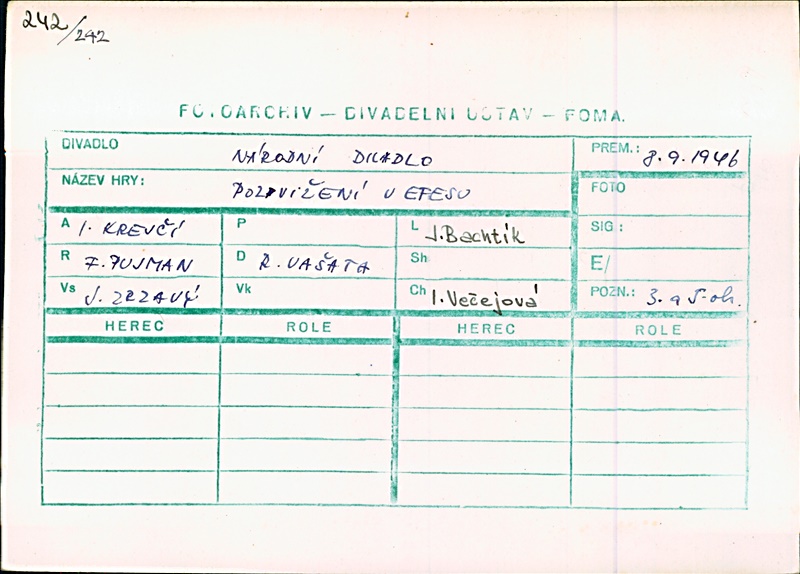 242/242
FOTOARCHIV — DIVADELNÍ ÚSTAV — FOMA.
DIVADLO NÁRODNÍ DIVADLO PREM.: 8.9.1946
NÁZEV HRY: POZDVIŽENÍ V EFESU FOTO
A I. KREJČÍ P L J.Bachtík SIG :
R F. PUJMAN D R. VAŠATA Sh E/
Vs J. ZRZAVÝ Vk Ch I.Večejová POZN.: 3. a 5. ob.
HEREC ROLE HEREC ROLE